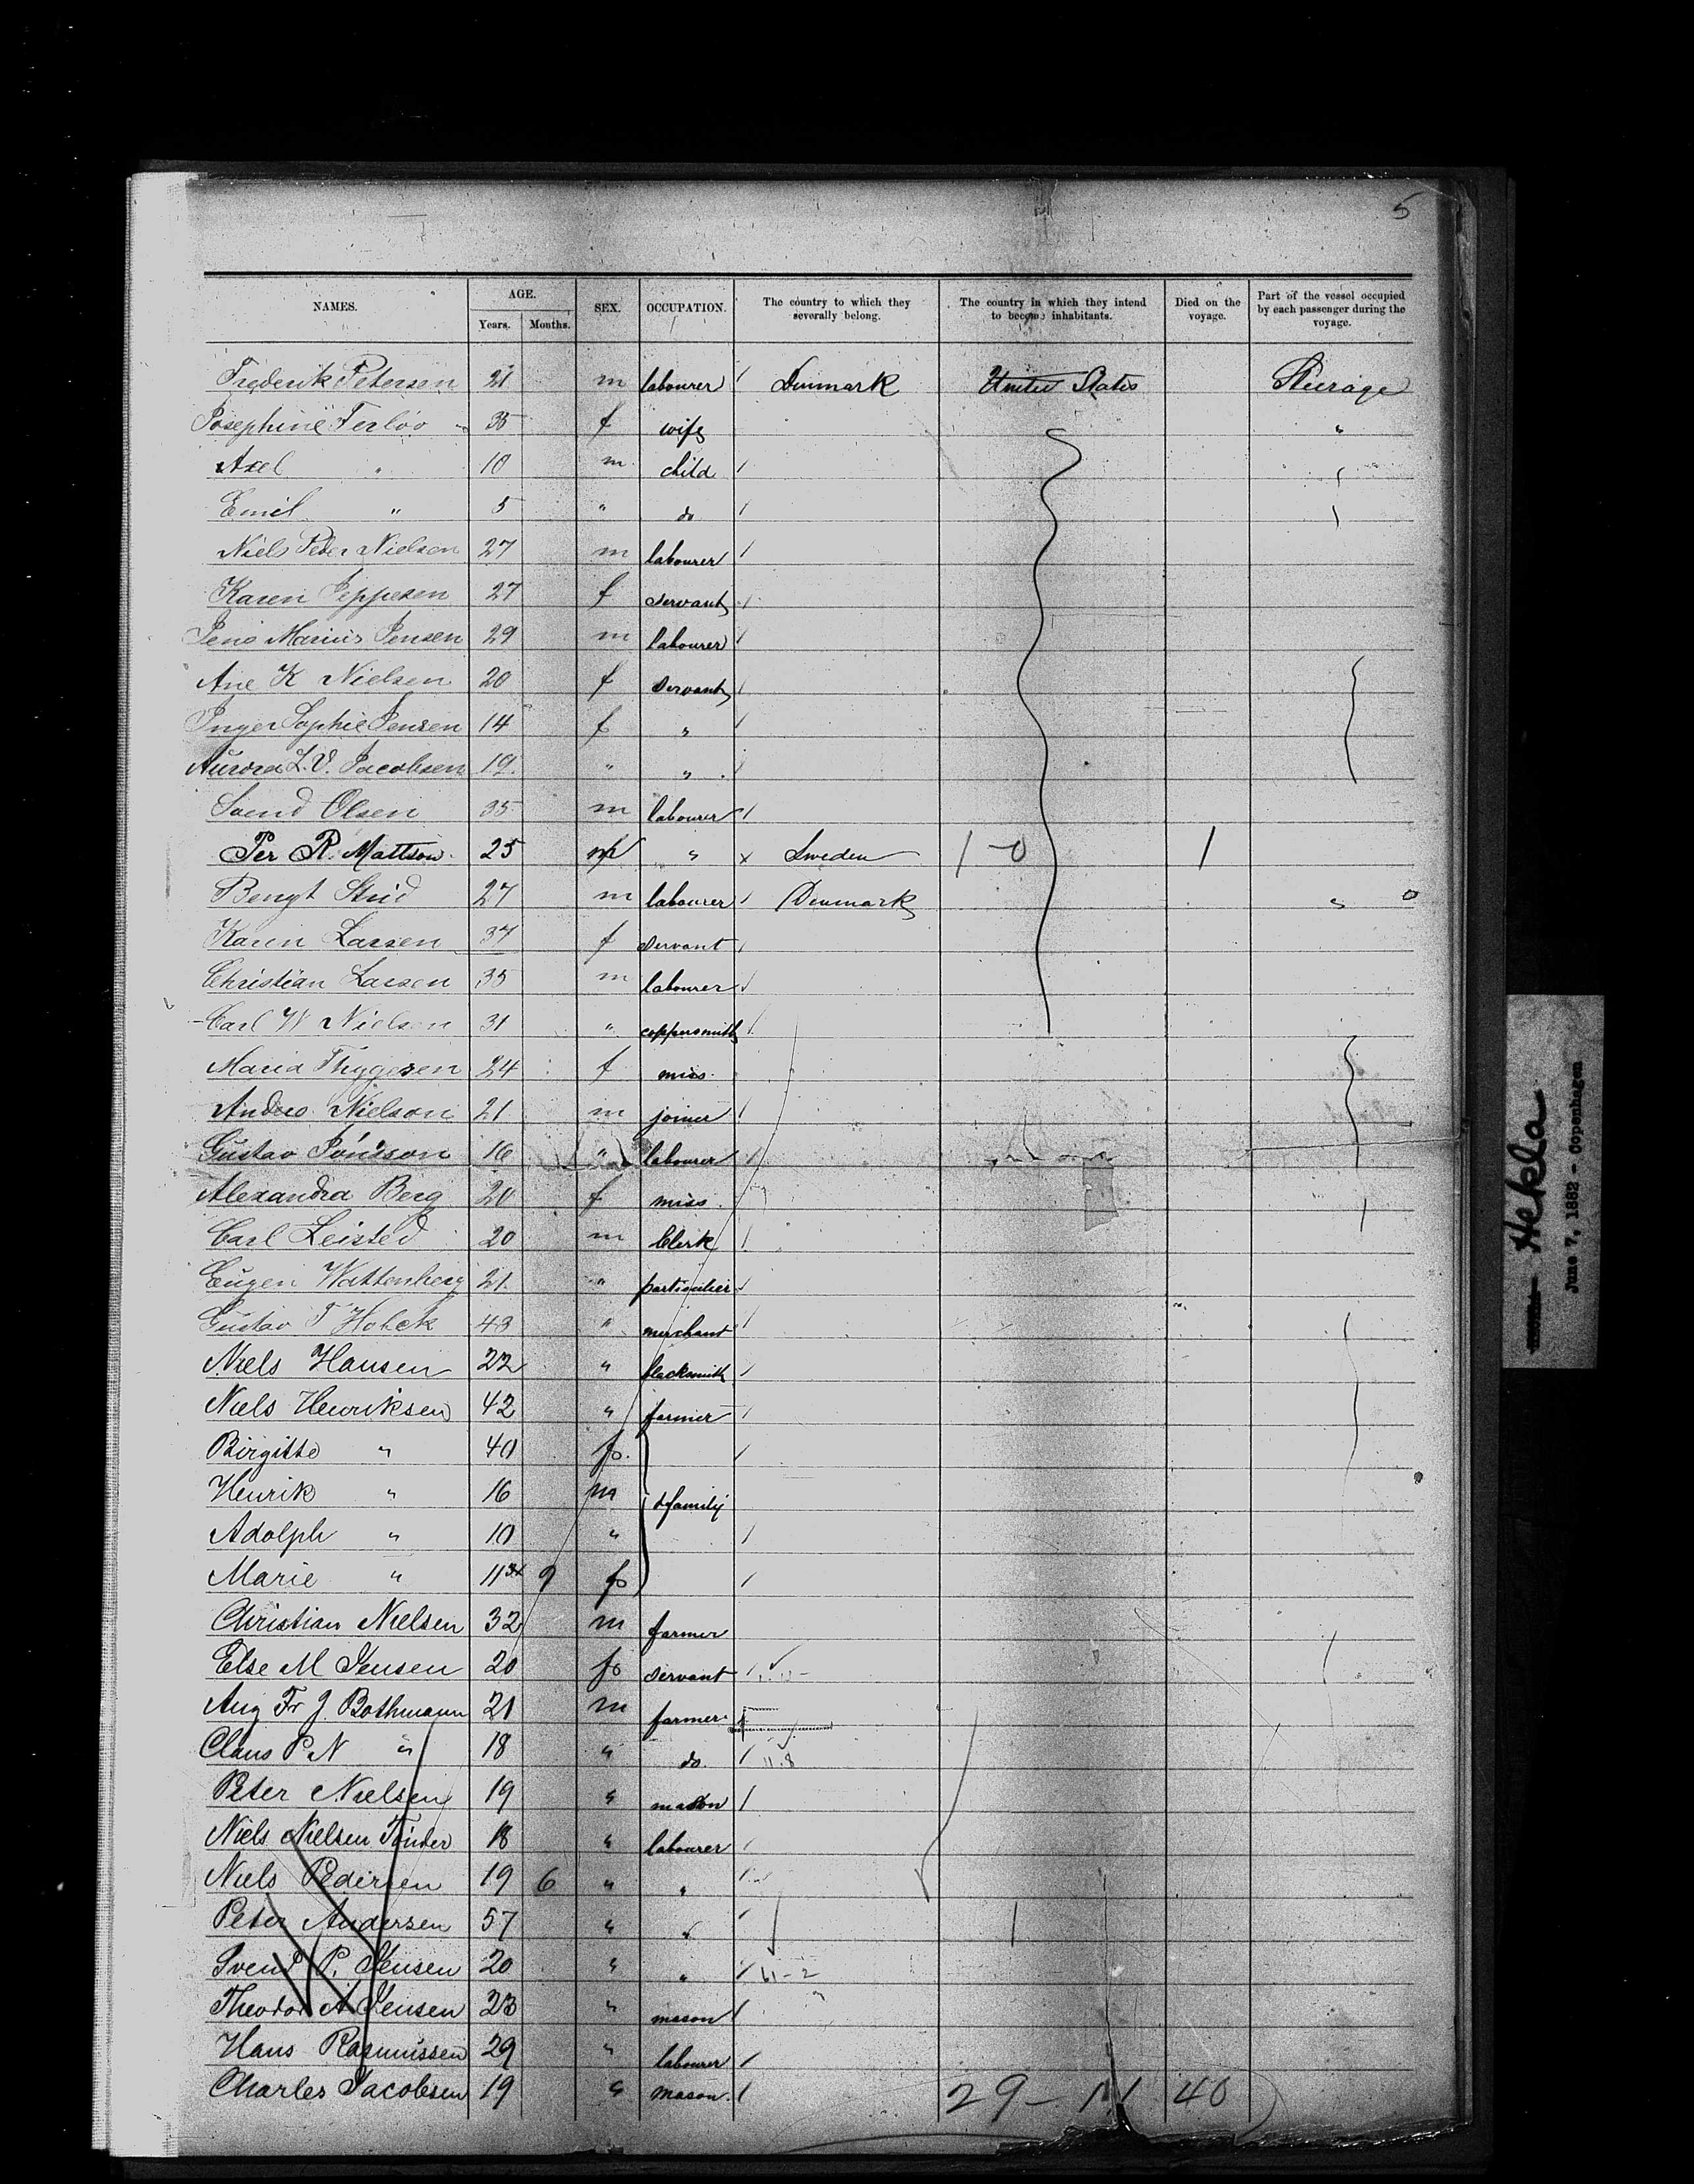 5
NAMES. AGE. SEX. OCCUPATION. The country to which they severally belong. The country in which they intend to become inhabitants. Died on the voyage. Part of the vessel occupied by each passenger during the voyage.
Years. Months.
Frederik Petersen 21 m labourer Denmark United States Steerage
Josephine Ferlöv 35 f wife "
Axel " 10 m child
Emil " 5 " do
Niels Peter Nielsen 27 m labourer
Karen Jeppesen 27 f servant
Jens Marius Jensen 29 m labourer
Ane K Nielsen 20 f servant
Inger Sophie Jensen 14 f "
Aurora L. V. Jacobsen 19 " "
Svend Olsen 35 m labourer
Per R. Mattson 25 m " x Sweden 1-0 1
Bengt Strid 27 m labourer Denmark " 0
Karen Larsen 37 f servant
Christian Larsen 35 m labourer
Carl W Nielsen 31 " coppersmith
Maria Thygesen 24 f miss
Andres Nielson 21 m joiner
Gustav Jönsson 16 " labourer
Alexandra Berg 20 f miss
Carl Leisted 20 m Clerk
Eugen Wattenberg 21 " particulier
Gustav T Holck 43 " merchant
Niels Hansen 22 " blacksmith
Niels Henriksen 42 " farmer
Birgitte " 40 f
Henrik " 16 m family
Adolph " 10 "
Marie " 11 9 f
Christian Nielsen 32 m farmer
Else M Jensen 20 f servant
Aug Fr J. Bothmann 21 m farmer
Claus P N " 18 " do. 11.8
Peter Nielsen 19 " mason
Niels Nielsen Tönder 18 " labourer
Niels Pedersen 19 6 " "
Peter Andersen 57 " "
Svend P. Jensen 20 " " 61-2
Theodor A Jensen 23 " mason
Hans Rasmussen 29 " labourer
Charles Jacobsen 19 " mason
29-11 40
Hekla
June 7, 1882 - Copenhagen